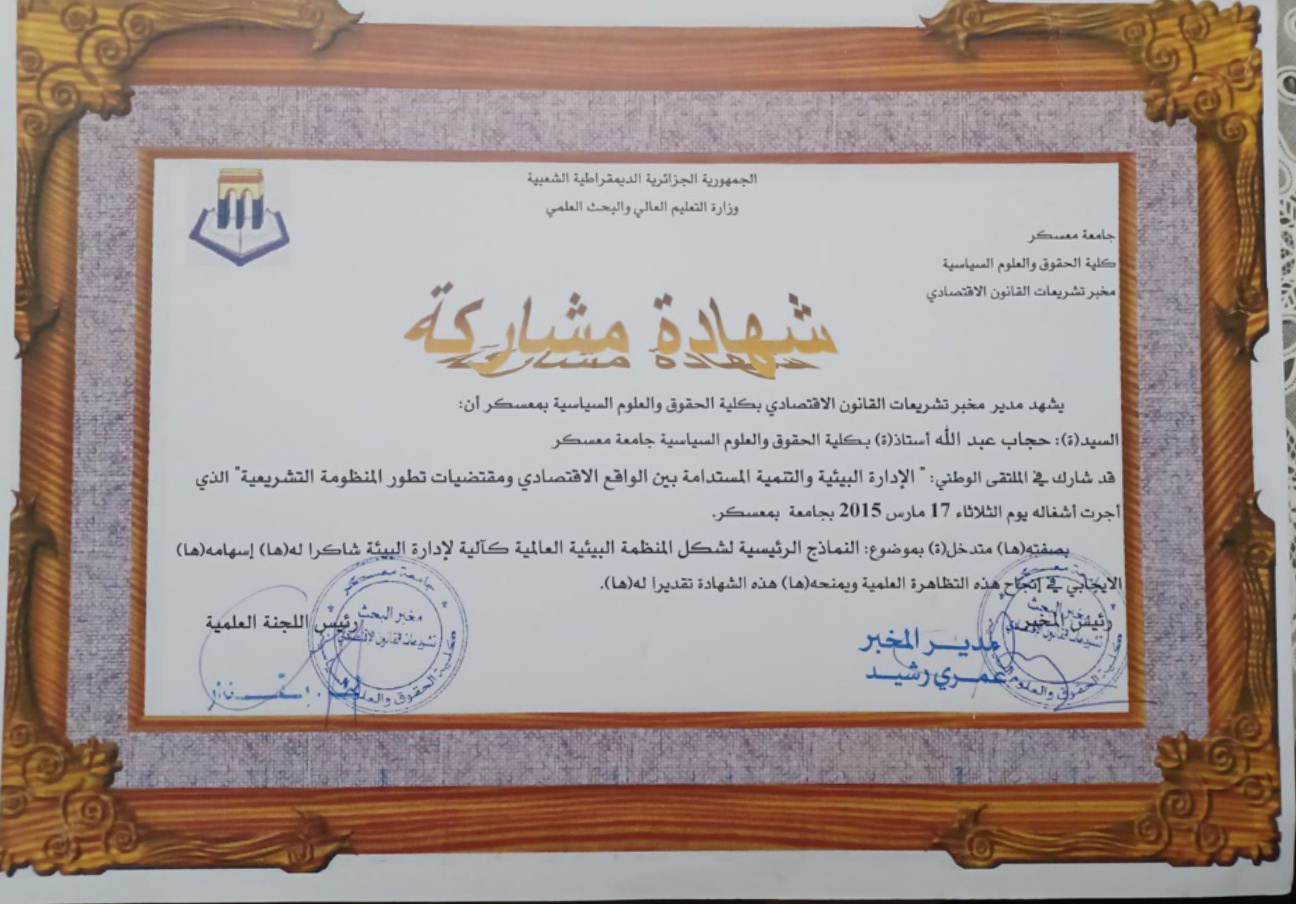 الجمهورية الجزائرية الديمقراطية الشعبية
وزارة التعليم العالي والبحث العلمي
جامعة معسكر
كلية الحقوق والعلوم السياسية
مخبر تشريعات القانون الاقتصادي
شهادة مشاركة
يشهد مدير مخبر تشريعات القانون الاقتصادي بكلية الحقوق والعلوم السياسية بمعسكر أن:
السيد(ة): حجاب عبد الله أستاذ(ة) بكلية الحقوق والعلوم السياسية جامعة معسكر
قد شارك في الملتقى الوطني: " الإدارة البيئية والتنمية المستدامة بين الواقع الاقتصادي ومقتضيات تطور المنظومة التشريعية" الذي
أجرت أشغاله يوم الثلاثاء 17 مارس 2015 بجامعة بمعسكر.
بصفته(ها) متدخل(ة) بموضوع: النماذج الرئيسية لشكل المنظمة البيئية العالمية كآلية لإدارة البيئة شاكرا له(ها) إسهامه(ها)
الايجابي في إنجاح هذه التظاهرة العلمية ويمنحه(ها) هذه الشهادة تقديرا له(ها).
رئيس المخبر
رئيس اللجنة العلمية
مدير المخبر
عمري رشيد
جامعة معسكر
مخبر البحث
تشريعات القانون الاقتصادي
كلية الحقوق والعلوم
مخبر البحث